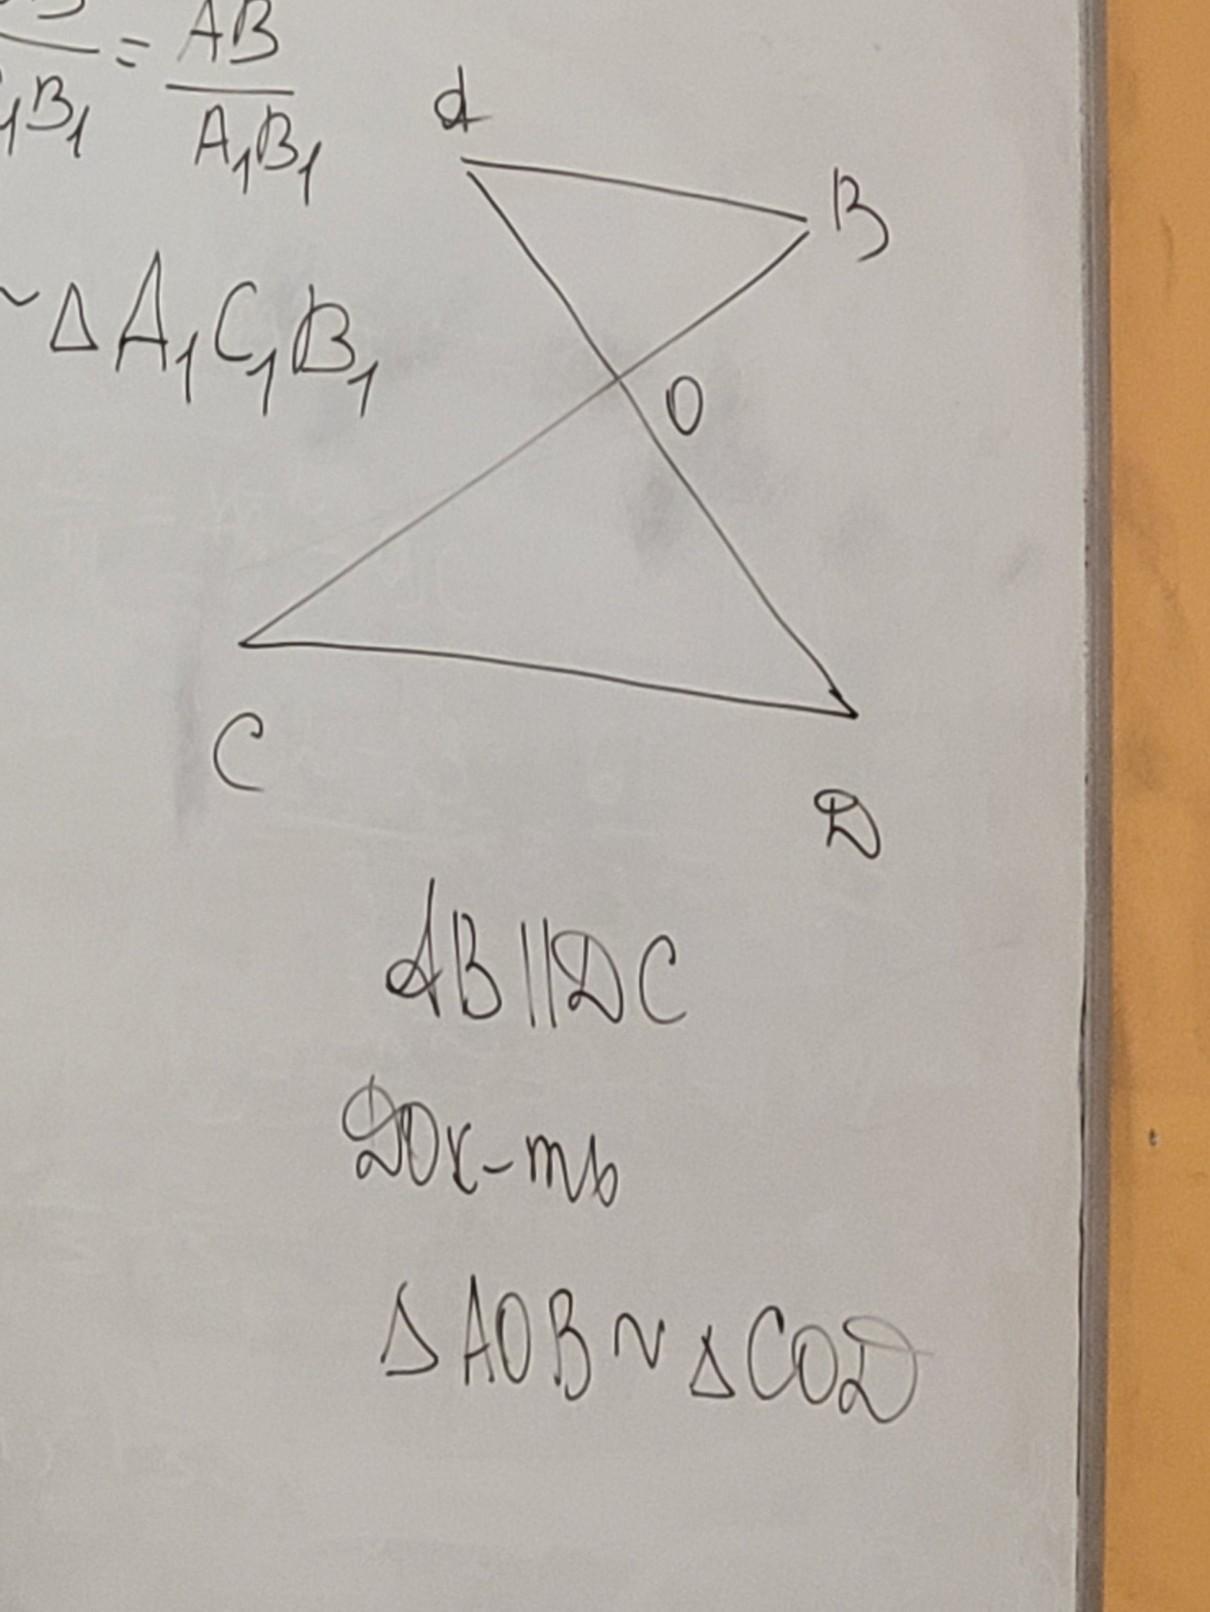 = AB
B₁ A₁B₁
~ΔA₁C₁B₁
A
B
O
C
D
AB||DC
Док-ть
ΔAOB~ΔCOD